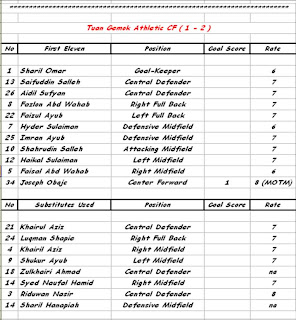 Tuan Gemok Athletic CF ( 1 - 2 )
No First Eleven Position Goal Score Rate
1 Sharil Omar Goal-Keeper 6
13 Saifuddin Salleh Central Defender 7
26 Aidil Sufyan Central Defender 7
8 Fazlan Abd Wahab Right Full Back 7
22 Faizul Ayub Left Full Back 7
7 Hyder Sulaiman Defensive Midfield 6
25 Imran Ayub Defensive Midfield 7
10 Shahrudin Salleh Attacking Midfield 7
12 Haikal Sulaiman Left Midfield 7
5 Faisal Abd Wahab Right Midfield 6
34 Joseph Obaje Center Forward 1 8 (MOTM)
No Substitutes Used Position Goal Score Rate
21 Khairul Aziz Central Defender 7
24 Luqman Shapie Right Full Back 7
4 Khairil Aziz Right Midfield 7
9 Shukur Ayub Left Midfield 7
18 Zulkhairi Ahmad Central Defender na
14 Syed Naufal Hamid Right Midfield 7
3 Riduwan Nasir Central Defender 8
14 Sharil Hanapiah Defensive Midfield na